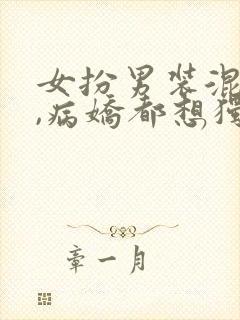 女扮男装混
,病嬌都想獨
章一月